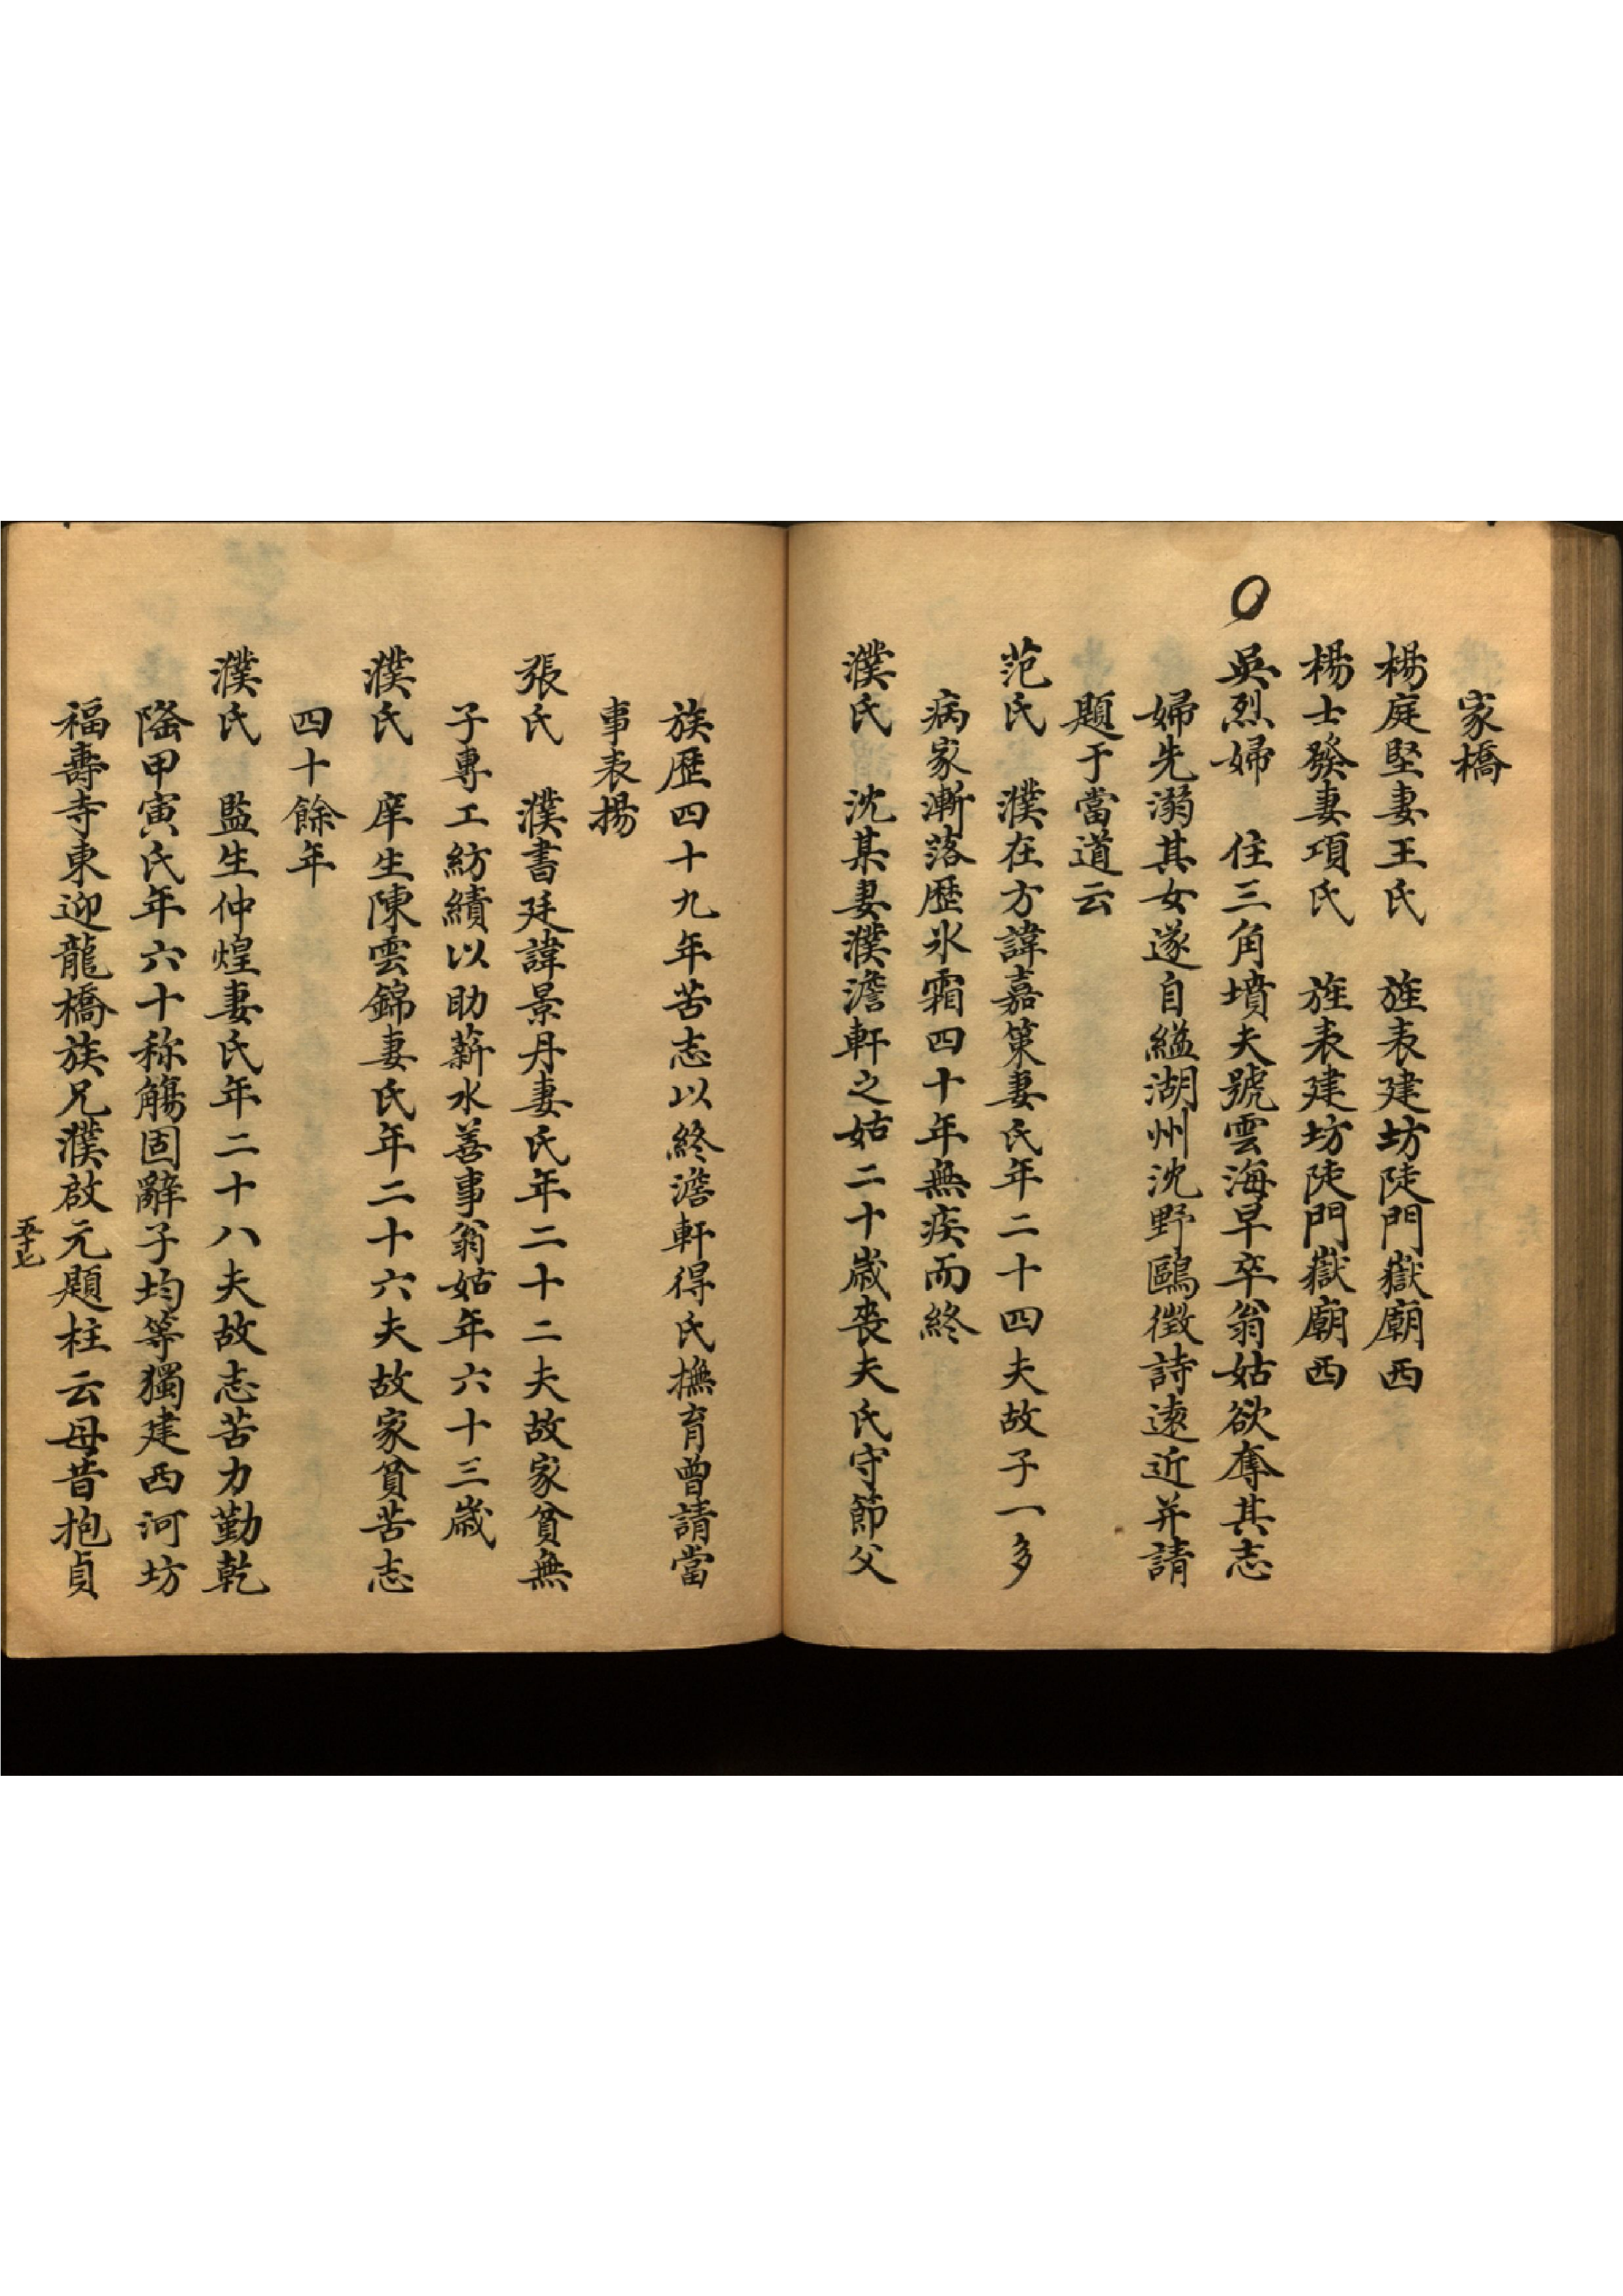 家橋
楊庭堅妻王氏　旌表建坊陡門嶽廟西
楊士發妻項氏　旌表建坊陡門嶽廟西
吳烈婦　住三角墳夫號雲海早卒翁姑欲奪其志
婦先溺其女遂自縊湖州沈野鷗徵詩遠近并請
題于當道云
范氏　濮在方諱嘉策妻氏年二十四夫故子一多
病家漸落歷氷霜四十年無疾而終
濮氏　沈某妻濮澹軒之姑二十歲喪夫氏守節父
族歷四十九年苦志以終澹軒得氏撫育曾請當
事表揚
張氏　濮書廷諱景丹妻氏年二十二夫故家貧無
子專工紡績以助薪水善事翁姑年六十三歲
濮氏　庠生陳雲錦妻氏年二十六夫故家貧苦志
四十餘年
濮氏　監生仲煌妻氏年二十八夫故志苦力勤乾
隆甲寅氏年六十称觴固辭子均等獨建西河坊
福壽寺東迎龍橋族兄濮啟元題柱云母昔抱貞
五十七